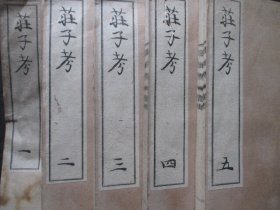 莊子考 一
莊子考 二
莊子考 三
莊子考 四
莊子考 五